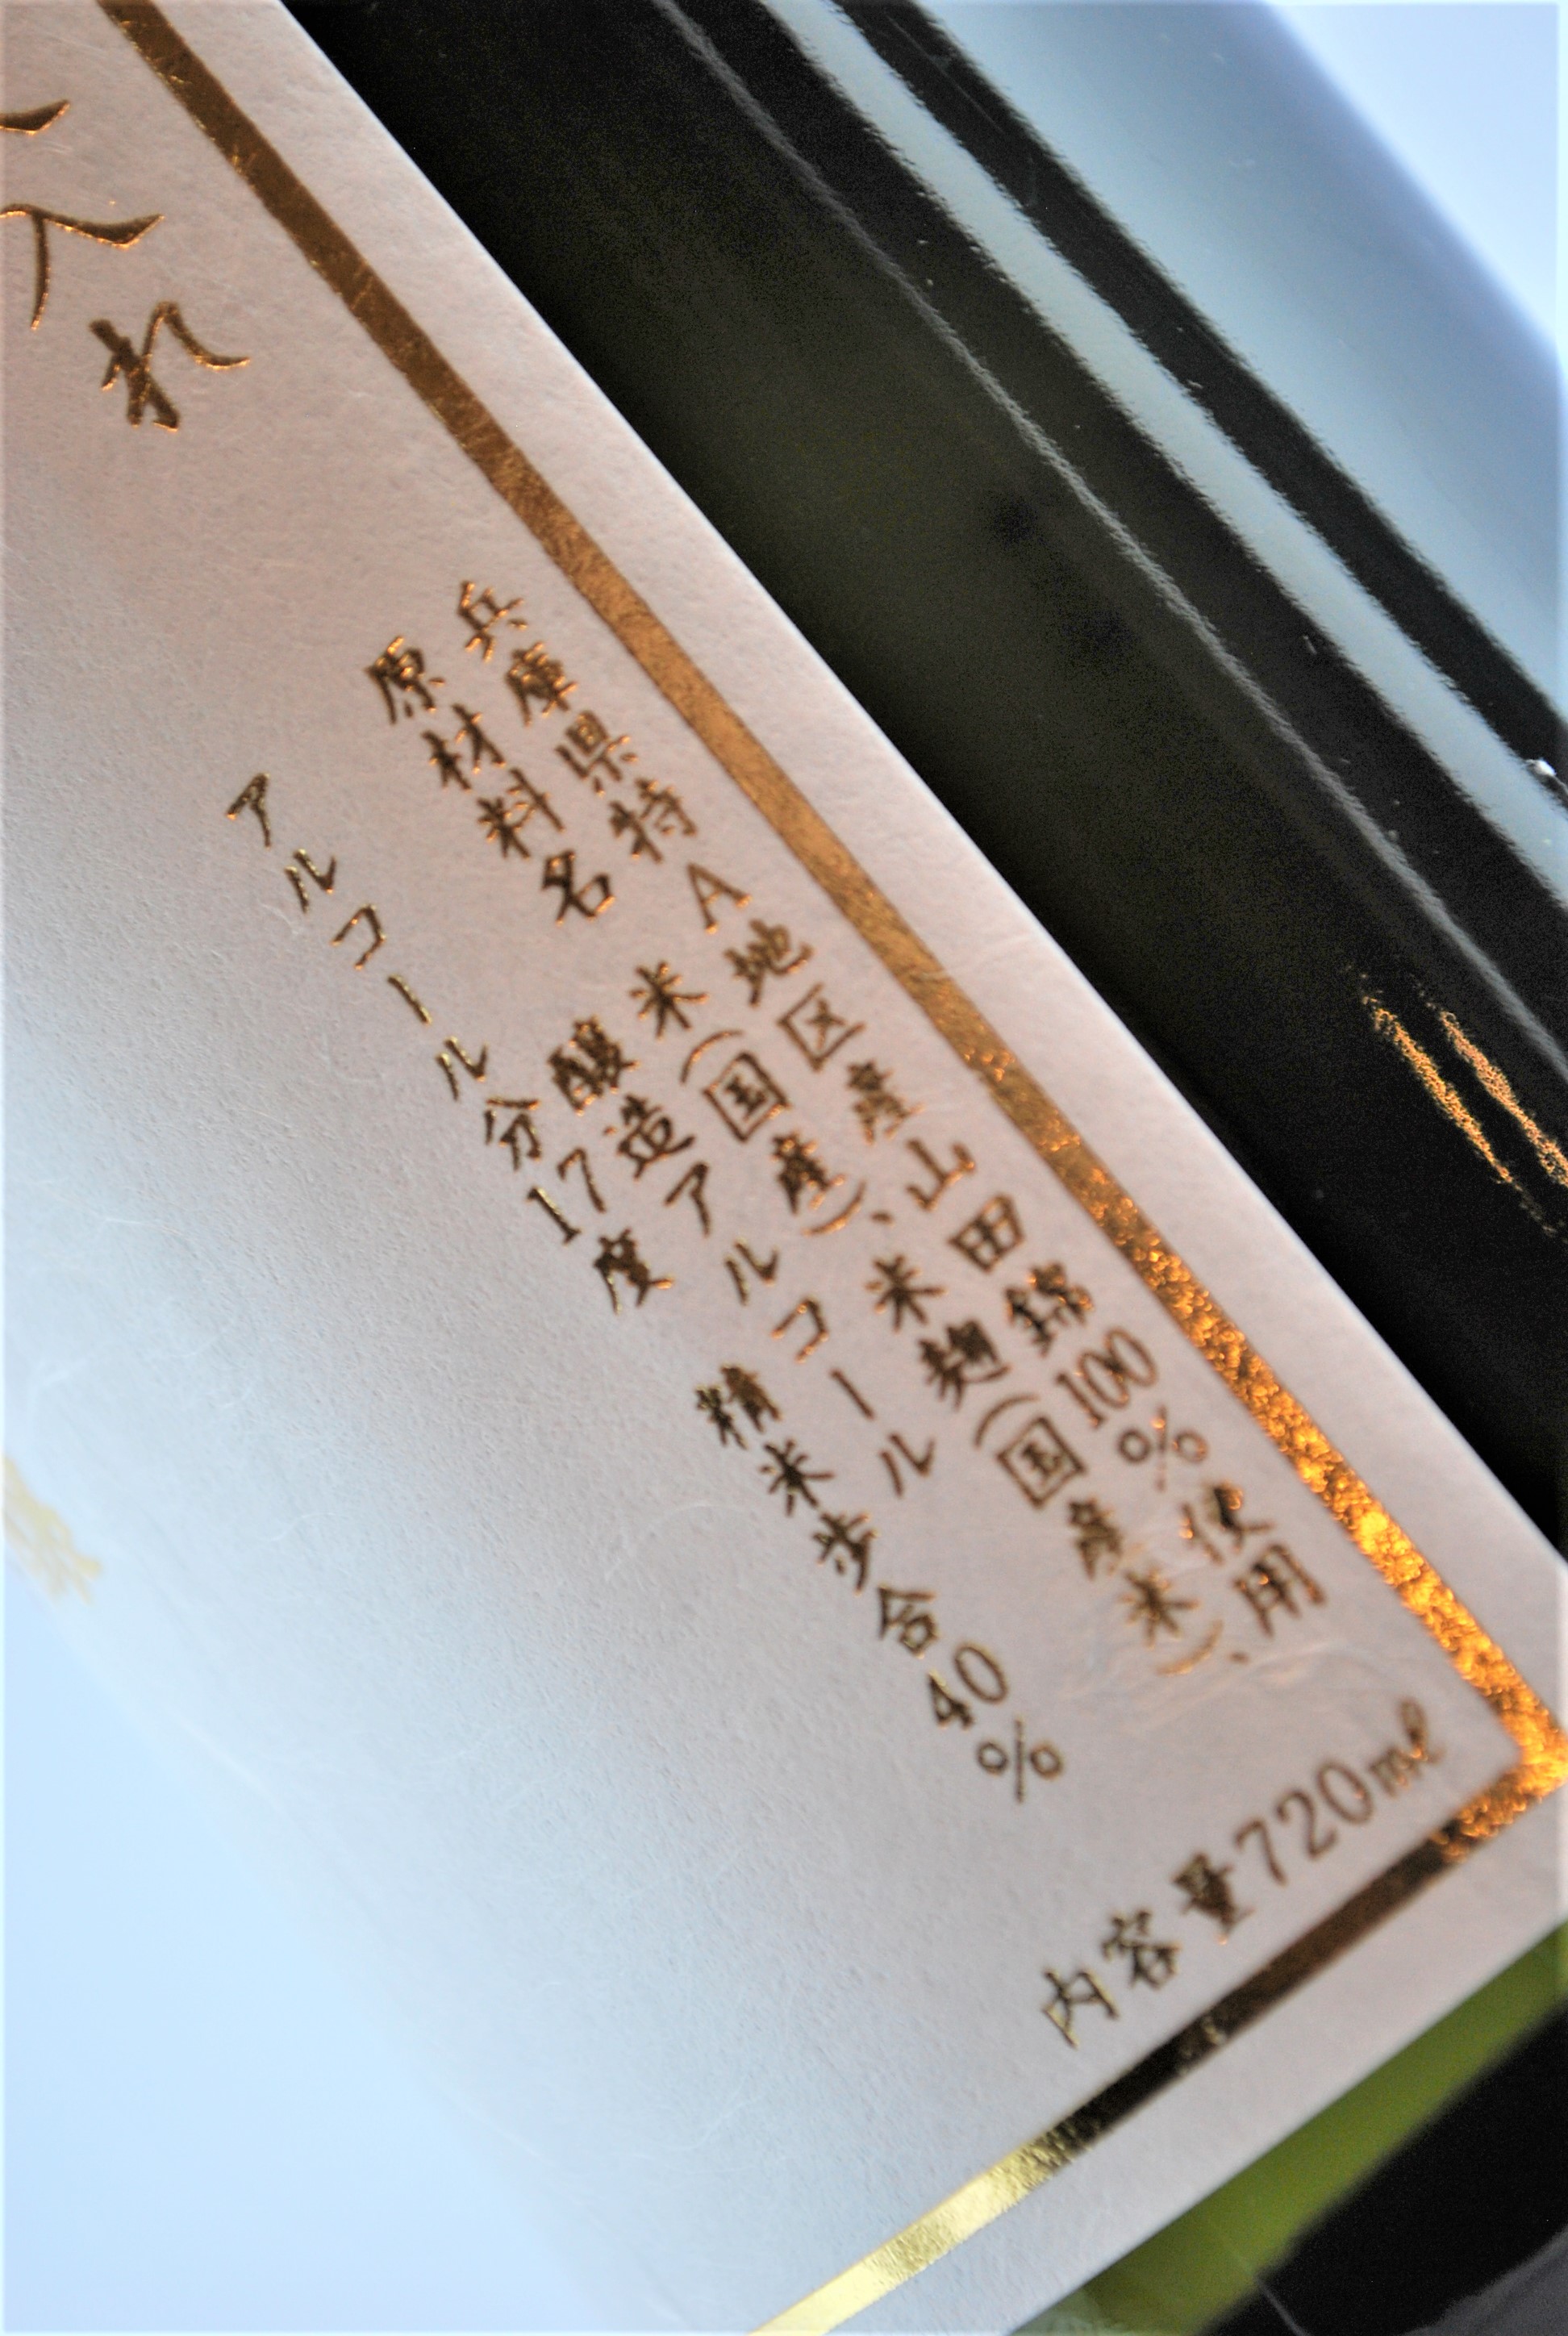 兵庫県特A地区産山田錦100%使用
原材料名 米(国産)、米麹(国産米)、
醸造アルコール
アルコール分17度 精米歩合40%
内容量720ml
れ